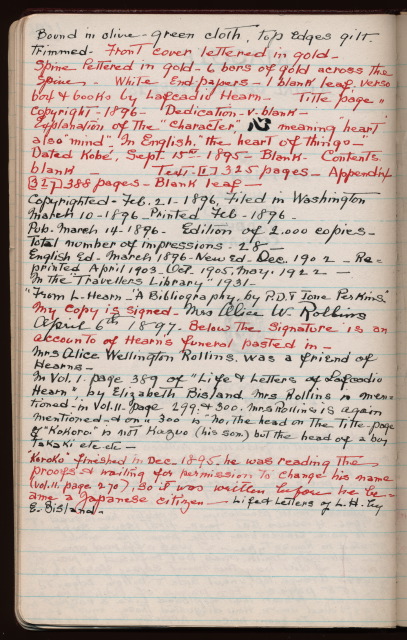 Bound in olive-green cloth, top edges gilt-
Trimmed- Front cover lettered in gold-
Spine lettered in gold- 6 bars of gold across the
Spine- White End-papers- 1 blank leaf, verso
box & books by Lafcadio Hearn- Title page "
Copyright-1896- Dedication-v-blank-
Explanation of the "character, 心 meaning "heart
also "mind-" In English, "the heart of things-
Dated Kobe, Sept. 15th 1895- Blank- Contents
blank- Text. [1] 325 pages- Appendix
[327] 388 pages- Blank leaf-
Copyrighted-Feb. 21-1896, Filed in Washington
March 10-1896- Printed Feb-1896-
Pub. March 14-1896- Edition of 2,000 copies-
Total number of impressions-28-
English Ed- March 1896- New Ed. Dec. 1902- Re-
printed April 1903. Oct. 1905, May, 1922-
In the "Travellers Library" 1931-
"From L. Hearn "A Bibliography. by P.D & Ione Perkins"
My copy is signed- Mrs Alice W. Rollins
April 6th 1897- Below the signature is an
account of Hearn's funeral pasted in-
Mrs Alice Wellington Rollins, was a friend of
Hearns-
In Vol. 1. page 389 of "Life & Letters of Lafcadio
Hearn" by Elizabeth Bisland Mrs Rollins is men-
tioned-in Vol. II-page 299 & 300. Mrs Rollins is again
mentioned-& on " 300 is "no, the head on the Title-page
of "Kokoro" is not Kazuo (his son) but the head of a boy
Takaki etc etc-
"Koroko" finished in Dec. 1895. he was reading the
proofs & waiting for permission to change his name
(vol. II. page 270), so it was written before he be-
ame a Japanese citizen- Life & Letters of L.H. by
E. Bisland-